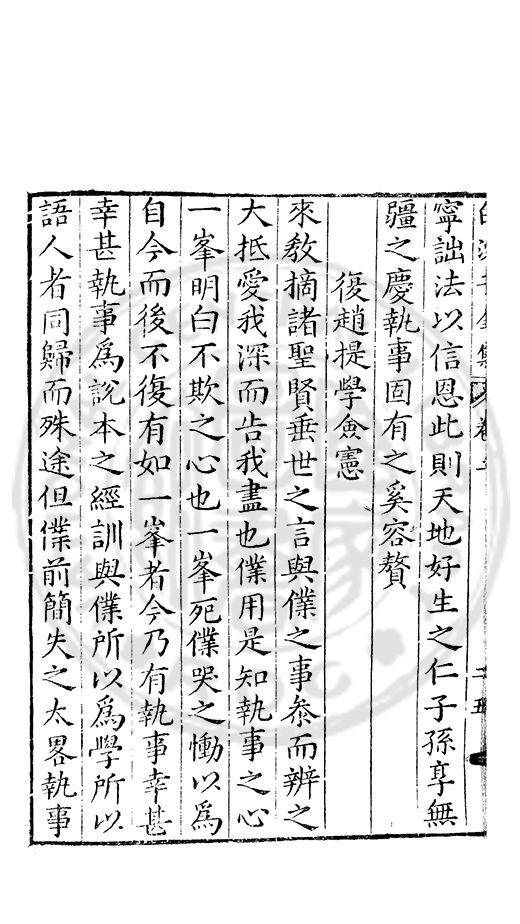 寧詘法以信恩此則天地好生之仁子孫享無
疆之慶執事固有之奚容贅
復趙提學僉憲
來教摘諸聖賢垂世之言與僕之事叅而辨之
大抵愛我深而告我盡也僕用是知執事之心
一峯明白不欺之心也一峯死僕哭之慟以爲
自今而後不復有如一峯者今乃有執事幸甚
幸甚執事爲說本之經訓與僕所以爲學所以
語人者同歸而殊途但僕前簡失之太畧執事